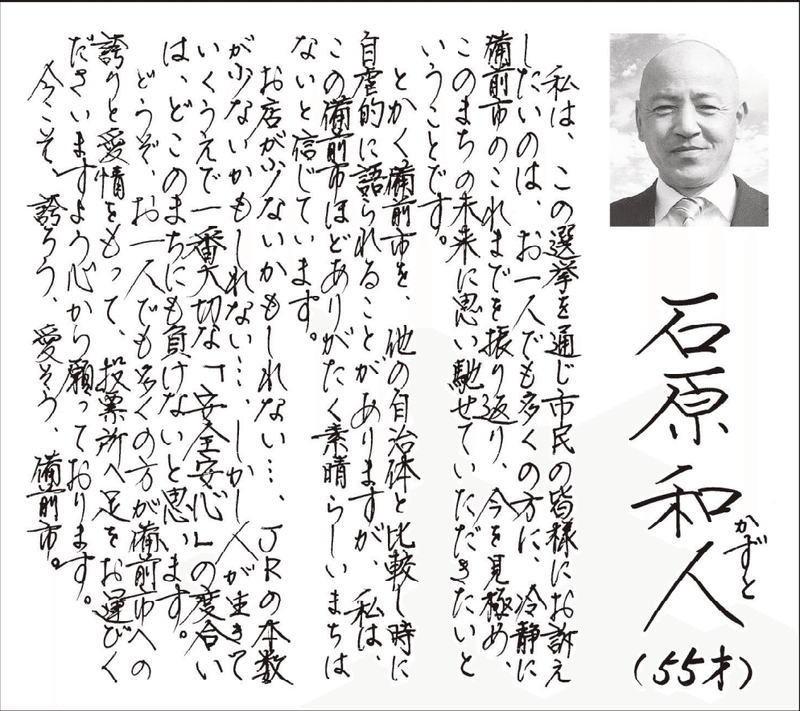 石原和人
かずと
(55才)
私は、この選挙を通じ市民の皆様にお訴え
したいのは、お一人でも多くの方に、冷静に
備前市のこれまでを振り返り、今を見極め、
このまちの未来に思い馳せていただきたいと
いうことです。
とかく備前市を、他の自治体と比較し時に
自虐的に語られることがありますが、私は、
この備前市ほどありがたく素晴らしいまちは
ないと信じています。
お店が少ないかもしれない…、JRの本数
が少ないかもしれない…、しかし人が生きて
いくうえで一番大切な「安全安心」の度合い
は、どこのまちにも負けないと思います。
どうぞ、お一人でも多くの方が備前市への
誇りと愛情をもって、投票所へ足をお運びく
ださいますよう心から願っております。
今こそ、誇ろう、愛そう、備前市。